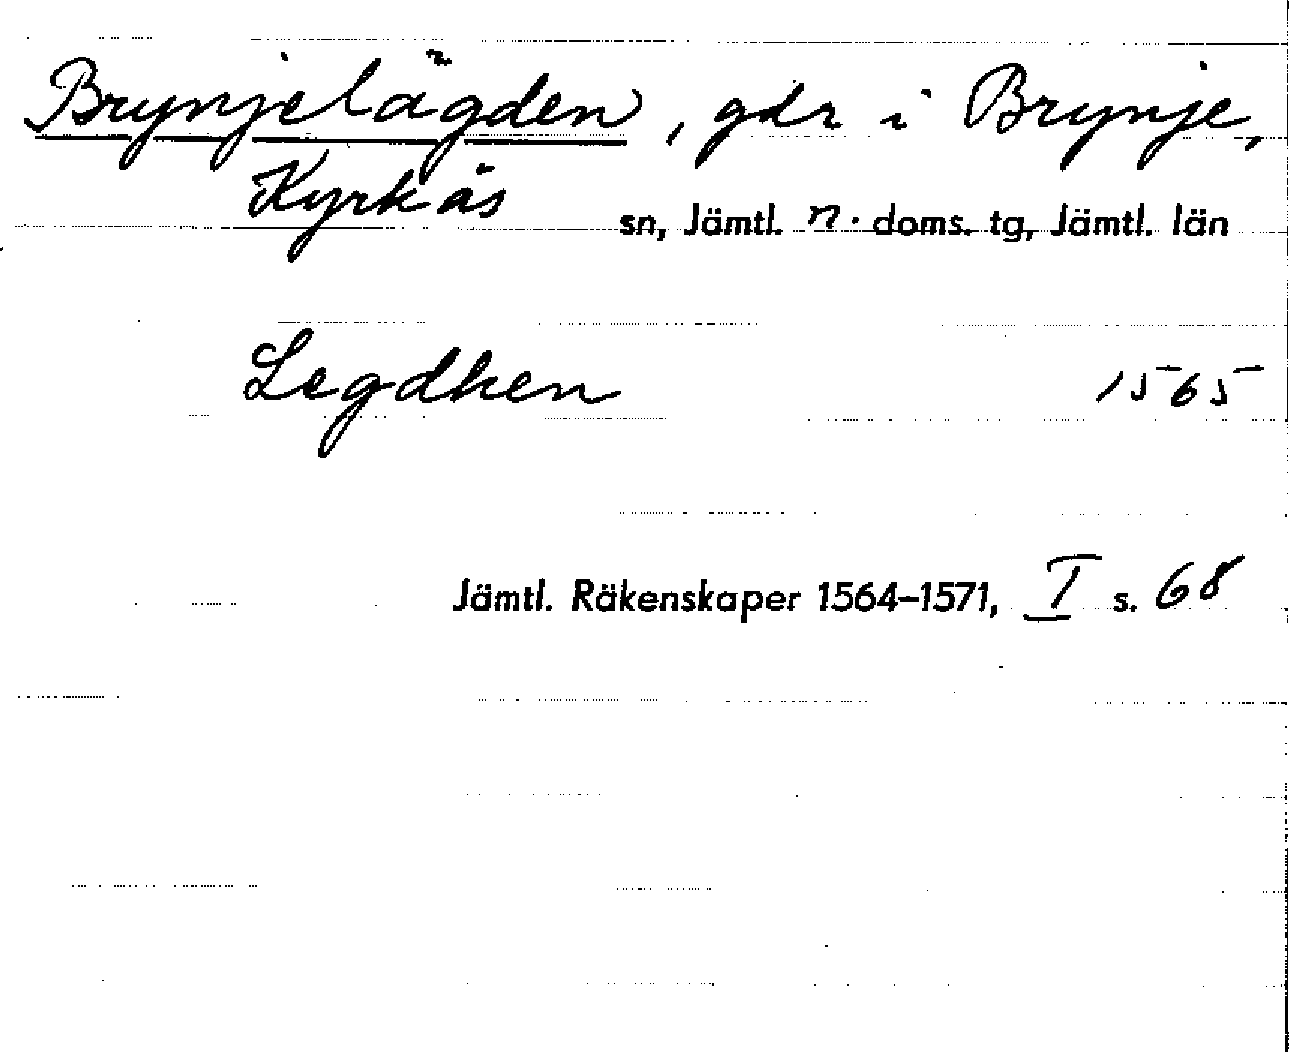 Brynjelägden, gdr i Brynje,
Kyrkås sn, Jämtl. n. doms. tg, Jämtl. län
Legdhen 1565
Jämtl. Räkenskaper 1564–1571, I s. 68